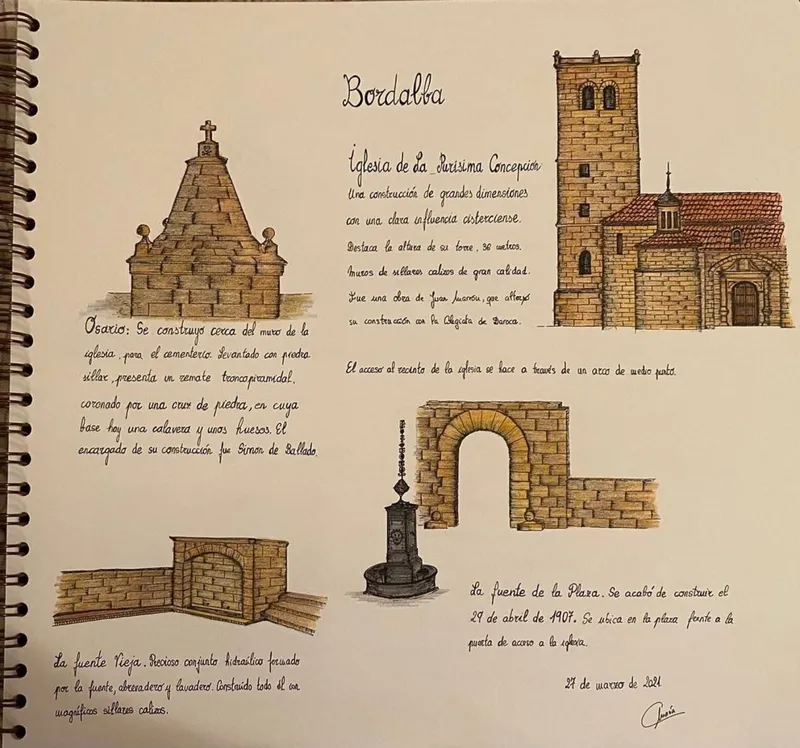 Bordalba
Iglesia de La Purisima Concepción
Una construcción de grandes dimensiones
con una clara influencia cisterciense.
Destaca la altura de su torre, 30 metros.
Muros de sillares calizos de gran calidad.
Fue una obra de Juan Marrón, que alternó
su construcción con la Colegiata de Daroca.
El acceso al recinto de la iglesia se hace a través de un arco de medio punto.
Osario: Se construyó cerca del muro de la
iglesia, para el cementerio. Levantado con piedra
sillar, presenta un remate troncopiramidal,
coronado por una cruz de piedra, en cuya
base hay una calavera y unos huesos. El
encargado de su construcción fue Simon de Ballado.
La fuente de la Plaza. Se acabó de construir el
29 de abril de 1907. Se ubica en la plaza frente a la
puerta de acceso a la iglesia.
La fuente Vieja. Precioso conjunto hidraúlico formado
por la fuente, abrevadero y lavadero. Construido todo él con
magníficos sillares calizos.
27 de marzo de 2021